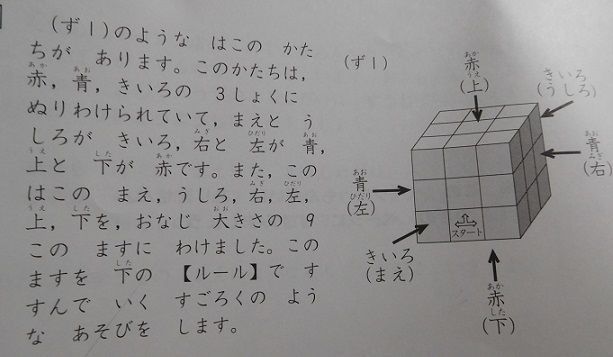 (ず1)のような はこの かた
ちが あります。このかたちは,
赤, 青, きいろの 3しょくに
ぬりわけられていて, まえと う
しろが きいろ, 右と 左が 青,
上と 下が 赤です。また, この
はこの まえ, うしろ, 右, 左,
上, 下を, おなじ 大きさの 9
この ますに わけました。この
ますを 下の 【ルール】で す
すんで いく すごろくの よう
な あそびを します。
(ず1)
あか
赤
うえ
(上)
きいろ
(うしろ)
あお
青
みぎ
(右)
あお
青
ひだり
(左)
スタート
きいろ
(まえ)
あか
赤
した
(下)